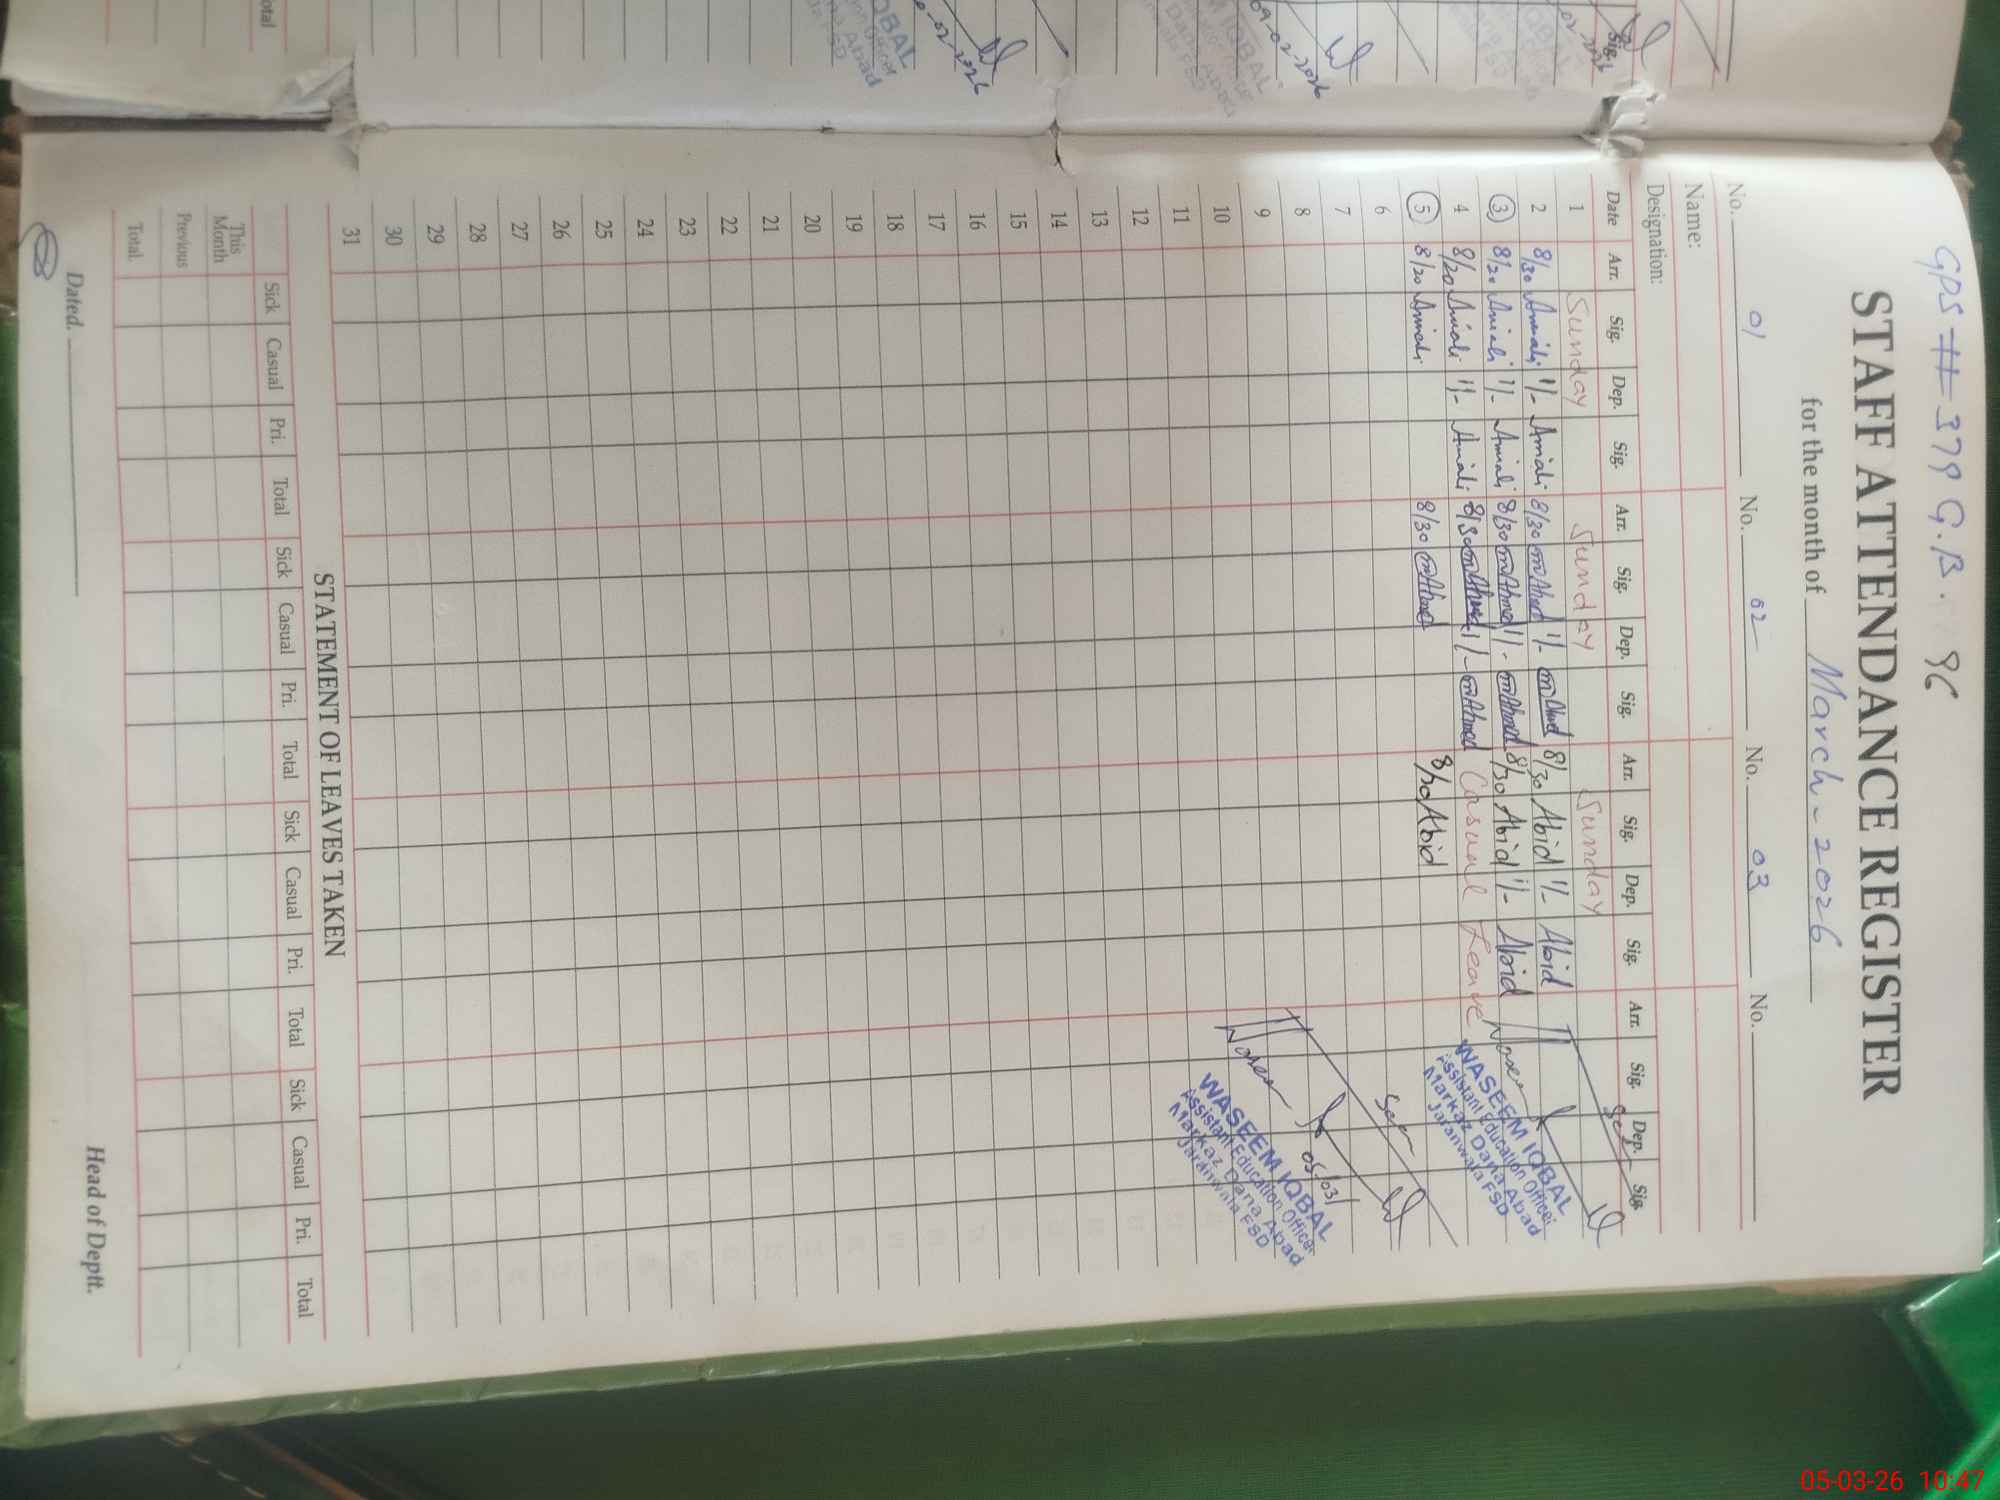 GPS # 379 G.B. 96
STAFF ATTENDANCE REGISTER
for the month of March - 2026
No. 01 No. 02 No. 03 No.
Name:
Designation:
Date Arr. Sig. Dep. Sig. Arr. Sig. Dep. Sig. Arr. Sig. Dep. Sig. Arr. Sig. Dep. Sig.
1 Sunday Sunday Sunday
2 8/30 1/- 8/30 mAhmed 1/- mAhmed 8/30 Abid 1/- Abid
3 8/20 1/- 8/30 mAhmed 1/- mAhmed 8/30 Abid 1/- Abid
4 8/20 1/- 8/30 mAhmed 1/- mAhmed Casual Leave
5 8/20 8/30 mAhmed 8/20 Abid
6
7
8
9
10
11
12
13
14
15
16
17
18
19
20
21
22
23
24
25
26
27
28
29
30
31
WASEEM IQBAL
Assistant Education Officer
Markaz Dana Abad
Jaranwala FSD
05/03/
WASEEM IQBAL
Assistant Education Officer
Markaz Dana Abad
Jaranwala FSD
STATEMENT OF LEAVES TAKEN
Sick Casual Pri. Total Sick Casual Pri. Total Sick Casual Pri. Total Sick Casual Pri. Total
This Month
Previous
Total
Dated. Head of Deptt.
09-02-2026
05-03-26 10:47